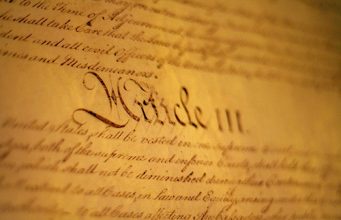 to the Time of Adjourn
he shall take Care that the
dent and all civil Officers
mes and Misdemeanors.
Article III.
United States, shall be vested in one supreme Co
dges, both of the supreme and inferior Courts, shall hold
which shall not be diminished during
to all Cases, in Law and Equity, arising under this
to all Cases affecting Ambassa